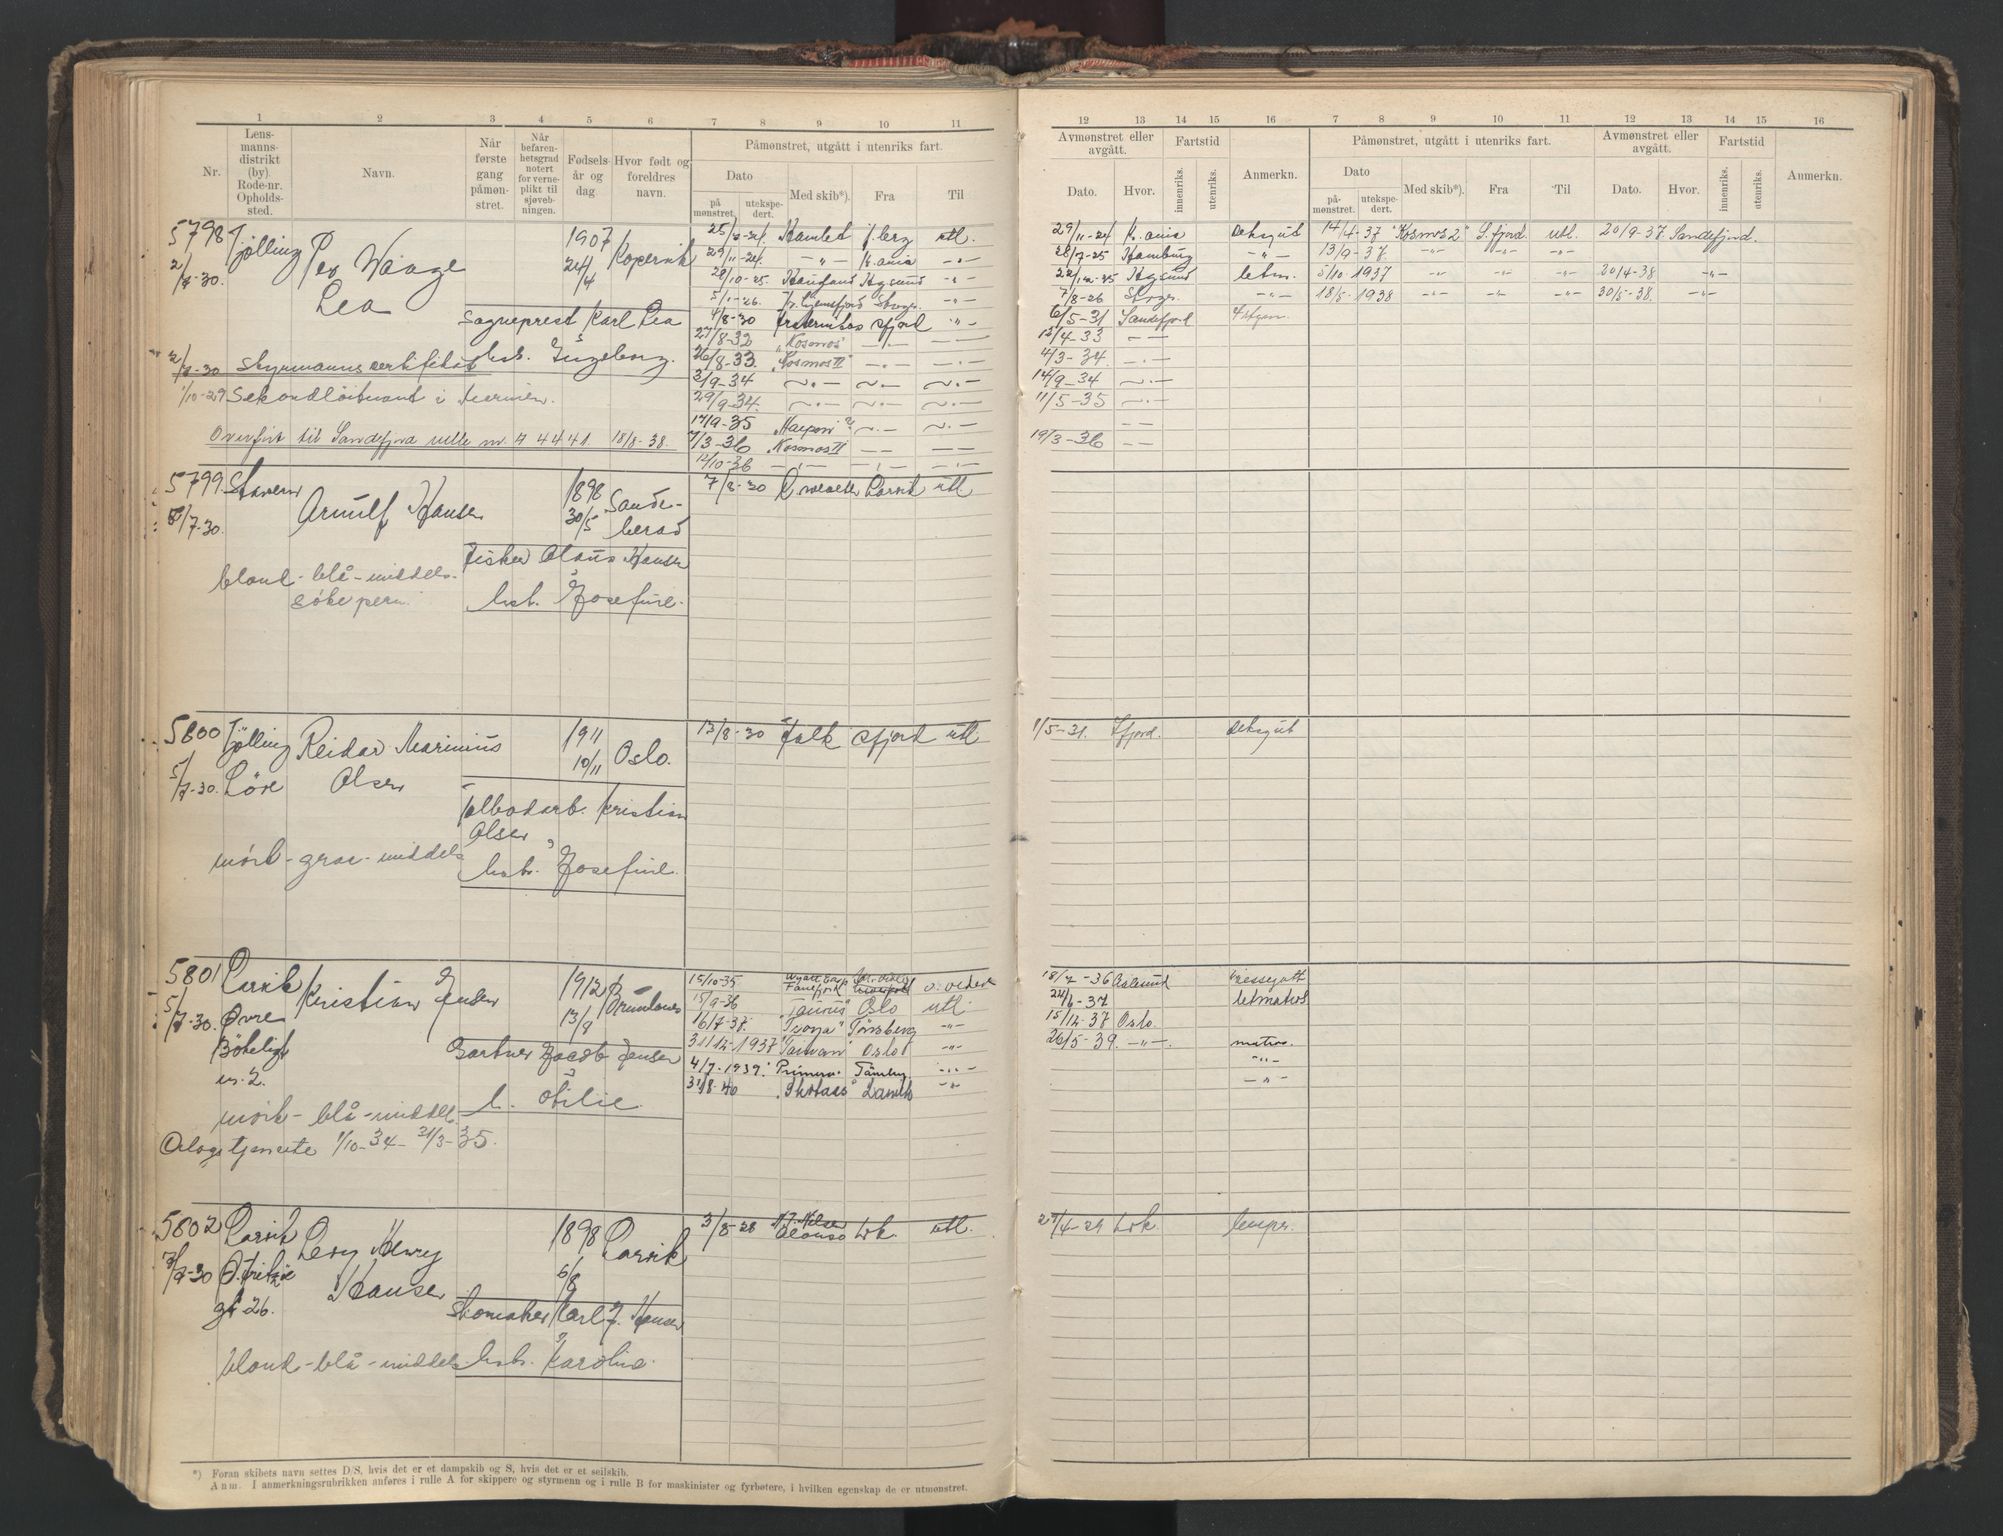 1 2 3 4 5 6 7 8 9 10 11
Nr. Lensmannsdistrikt (by). Rode-nr. Opholdssted. Navn. Når første gang påmønstret. Når befarenhetsgrad notert for verneplikt til sjøvebningen. Fødselsår og dag Hvor født og foreldres navn. Påmønstret, utgått i utenriks fart.
Dato Med skib*). Fra Til
påmønstret. utekspedert.
5798 Tjölling Per Waage Lea 1907 24/4 Kopervik
2/7-30.
Sogneprest Karl Lea
hst. Ingeborg.
2/7-30 Styrmannscertifikat
1/10-29 Sekondløitnant i marinen.
Overført til Sandefjord rulle nr. A 4441. 18/8-38.
29/11-24. -"- Kr.ania -"-
4/8-30 Fraternitas Sfjord -"-
27/8-32 "Kosmos" -"- -"-
26/8-33. "Kosmos II" -"- -"-
2/9-34 -"- -"- -"-
29/9-34. -"- -"- -"-
17/9-35
7/3-36 Kosmos II -"- -"-
12/10-36 -"- -"- -"-
5799. Stavern Arnulf Hansen 1898 30/5 Sandeherad
5/7-30.
Fisker Olaus Hansen
hst. Josefine.
blond - blå - middels.
7/8-30 Larvik utl
5800 Tjölling Reidar Marinius Olsen 1911 10/11 Oslo.
5/7-30.
Kristian Olsen
hst. Josefine.
mörk - grå - middels
13/8-30 Falk Sfjord utl
5801 Larvik Kristian Jensen 1912 13/9 Brunlanes
5/7-30. Øvre Bökeligt nr. 2.
Gartner Jacob Jensen
h. Otilie
mörk - blå - middels.
Orlogstjeneste 1/10-34 - 31/3-35.
15/10-35
15/9-36 "Taurus" Oslo utl.
16/7-37. "Tronja" Tönsberg -"-
31/12-1937 "Taiwan" Oslo -"-
4/7-1939. Primero.
31/8-40
5802 Larvik Levy Henry Hansen 1898 6/8 Larvik
7/7-30 Ø. Fritzöe gt 26.
Skomaker Karl J. Hansen
hst. Karoline.
blond - blå - middels
3/8-28 N.T. Nielsen Alonso Lvk. utl.
*) Foran skibets navn settes D/S, hvis det er et dampskib og S, hvis det er et seilskib.
Anm. I anmerkningsrubrikken anføres i rulle A for skippere og styrmenn og i rulle B for maskinister og fyrbøtere, i hvilken egenskap de er utmønstret.
12 13 14 15 16 7 8 9 10 11 12 13 14 15 16
Avmønstret eller avgått. Fartstid Anmerkn. Påmønstret, utgått i utenriks fart. Avmønstret eller avgått. Fartstid Anmerkn.
Dato. Hvor. innenriks. utenriks. Dato Med skib*). Fra Til Dato. Hvor. innenriks. utenriks.
påmønstret. utekspedert.
29/11-24 Kr.ania deksgut 14/4-37 "Kosmos 2" S.fjord. utl. 20/9-37. Sandefjord.
28/7-25 Hamburg -"- 13/9-37. -"- -"- -"-
letm. 5/10-1937 -"- -"- -"- 20/4-38 -"-
7/8-26 -"- 18/5-1938 -"- -"- -"- 30/5-38. -"-
6/5-31 Sandefjord
12/4-33 -"-
4/3-34. -"-
14/9-34 -"-
11/5-35 -"-
19/3-36 -"-
1/5-31. Sfjord. deksgut
18/7-36 Aalesund
24/6-37 letmatros
15/12-37 Oslo.
26/5-39. -"- matros.
-"-
-"-
Lvk. lemper.